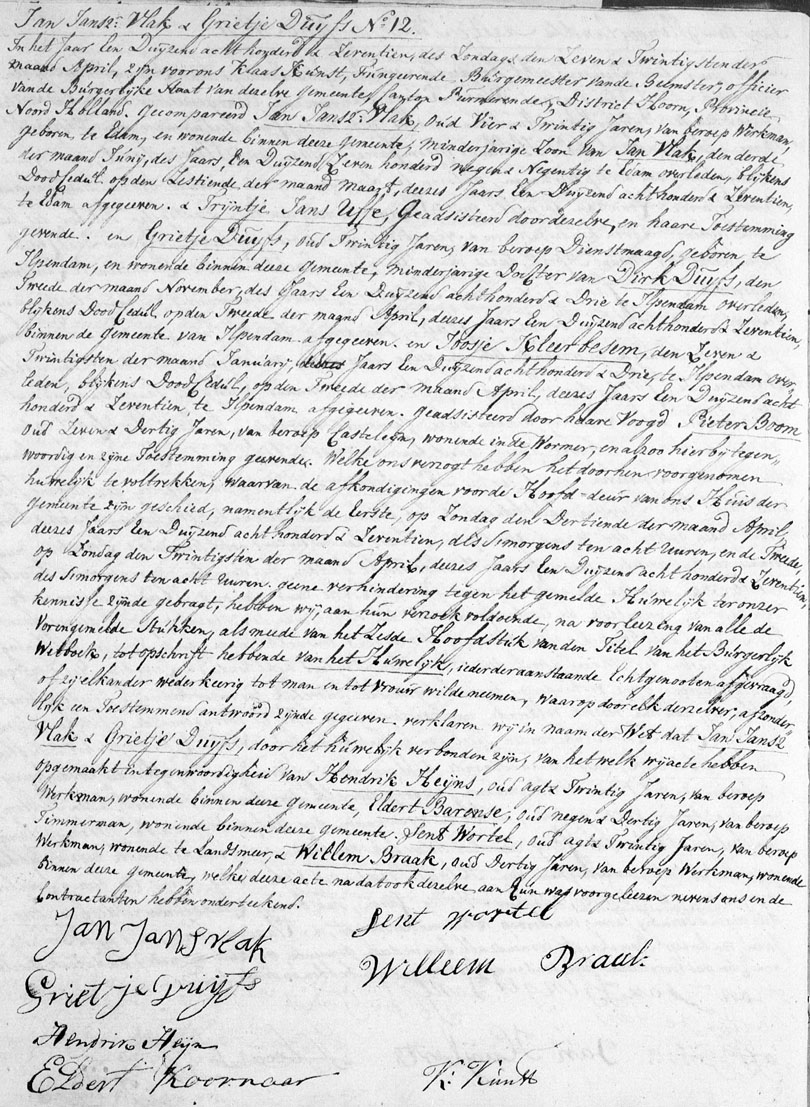 Jan Jansz: Vlak & Grietje Duijfs No 12.
In het Jaar Een Duijzend achthonderd & Zeventien, des Zondags den Zeven & Twintigsten der
maand April, zijn voor ons Klaas Kunst, Fungeerende Burgemeester vande Beemster, officier
vande Burgerlyke Staat van dezelve Gemeente, Canton Purmerende, District Hoorn, Provincie
Noord Holland. Gecompareerd Jan Jansz: Vlak, Oud Vier & Twintig Jaren, van beroep Werkman,
geboren te Edam, en wonende binnen deeze Gemeente, minderjarige Zoon van Jan Vlak, den derde
der maand Junij, des Jaars, Een Duijzend Zeven honderd negen & Negentig te Edam overleden, blijkens
Dood Cedul op den Zestiende der maand maart, deezes Jaars Een Duijzend achthonderd & Zeventien,
te Edam afgegeven. & Trijntje Jans Uffe, Geadsisteerd door dezelve, en haare Toestemming
gevende. en Grietje Duijfs, oud Twintig Jaren, van beroep Dienstmaagd, geboren te
Ilpendam, en wonende binnen deeze gemeente, minderjarige Dogter van Dirk Duijfs, den
Tweede der maand November, des Jaars Een Duijzend achthonderd & Drie te Ilpendam overleden,
blijkens Dood Cedul, op den Tweede der maand April, deezes Jaars Een Duijzend achthonderd & Zeventien,
binnen de Gemeente van Ilpendam afgegeven. en Joosje Kleerbesem, den Zeven &
Twintigsten der maand Januarij, deezes Jaars Een Duijzend achthonderd & Drie, te Ilpendam over
leden, blijkens Dood Cedul, op den Tweede der maand April, deezes Jaars Een Duijzend acht
honderd & Zeventien te Ilpendam afgegeven. Geadsisteerd door haare Voogd Pieter Boom
Oud Zeven & Dertig Jaren, van beroep Castelein, wonende inde Wormer, en alzoo hier bij tegen„
woordig en zijne Toestemming geevende. Welke ons verzogt hebben het door hen voorgenomen
huwelijk te voltrekken, waarvan de afkondigingen voor de Hoofd-deur van ons Huis der
Gemeente zijn geschied, namentlijk de Eerste, op Zondag den Dertiende der maand April,
deezes Jaars Een Duijzend achthonderd & Zeventien, des Smorgens ten acht Uuren, en de Tweede,
op Zondag den Twintigsten der maand April, deezes Jaars Een Duijzend achthonderd & Zeventien,
des Smorgens ten acht Uuren. geene verhindering tegen het gemelde Huwelijk ter onzer
kennisse zijnde gebragt, hebben wij aan hun verzoek voldoende, na voorleezing van alle de
Vorengemelde Stukken, als meede van het Zesde Hoofdstuk van den Titel van het Burgerlijk
Wetboek, tot opschrift hebbende van het Huwelijk, ieder der aanstaande Echtgenooten afgevraagd,
of zij elkander wederkeerig tot man en tot vrouw wilde neemen, waarop door elk derzelver, afzonder„
lijk een Toestemmend antwoord zijnde gegeeven. verklaren wij in naam der Wet dat Jan Jansz
Vlak & Grietje Duijfs, door het huwelijk verbonden zijn, van het welk wij acte hebben
opgemaakt in tegenwoordigheid van Hendrik Heijns, oud agt & Twintig Jaren, van beroep
Werkman, wonende binnen deeze gemeente, Eldert Barense, oud negen & Dertig Jaren, van beroep
Timmerman, wonende binnen deeze gemeente. Jent Wortel, oud agt & Twintig Jaren, van beroep
Werkman, wonende te Landsmeer, & Willem Braak, oud Dertig Jaren, van beroep Werkman, wonende
binnen deeze gemeente, welke deeze acte na dat ook dezelve aan hun was voorgeleezen nevens ons en de
Contractanten hebben onderteekend.
Jan Jans vlak
Jent wortel
Grietje Duijfs
Willeem Braak
Hendrik Heijn
Eldert Koornaar
K: Kunst